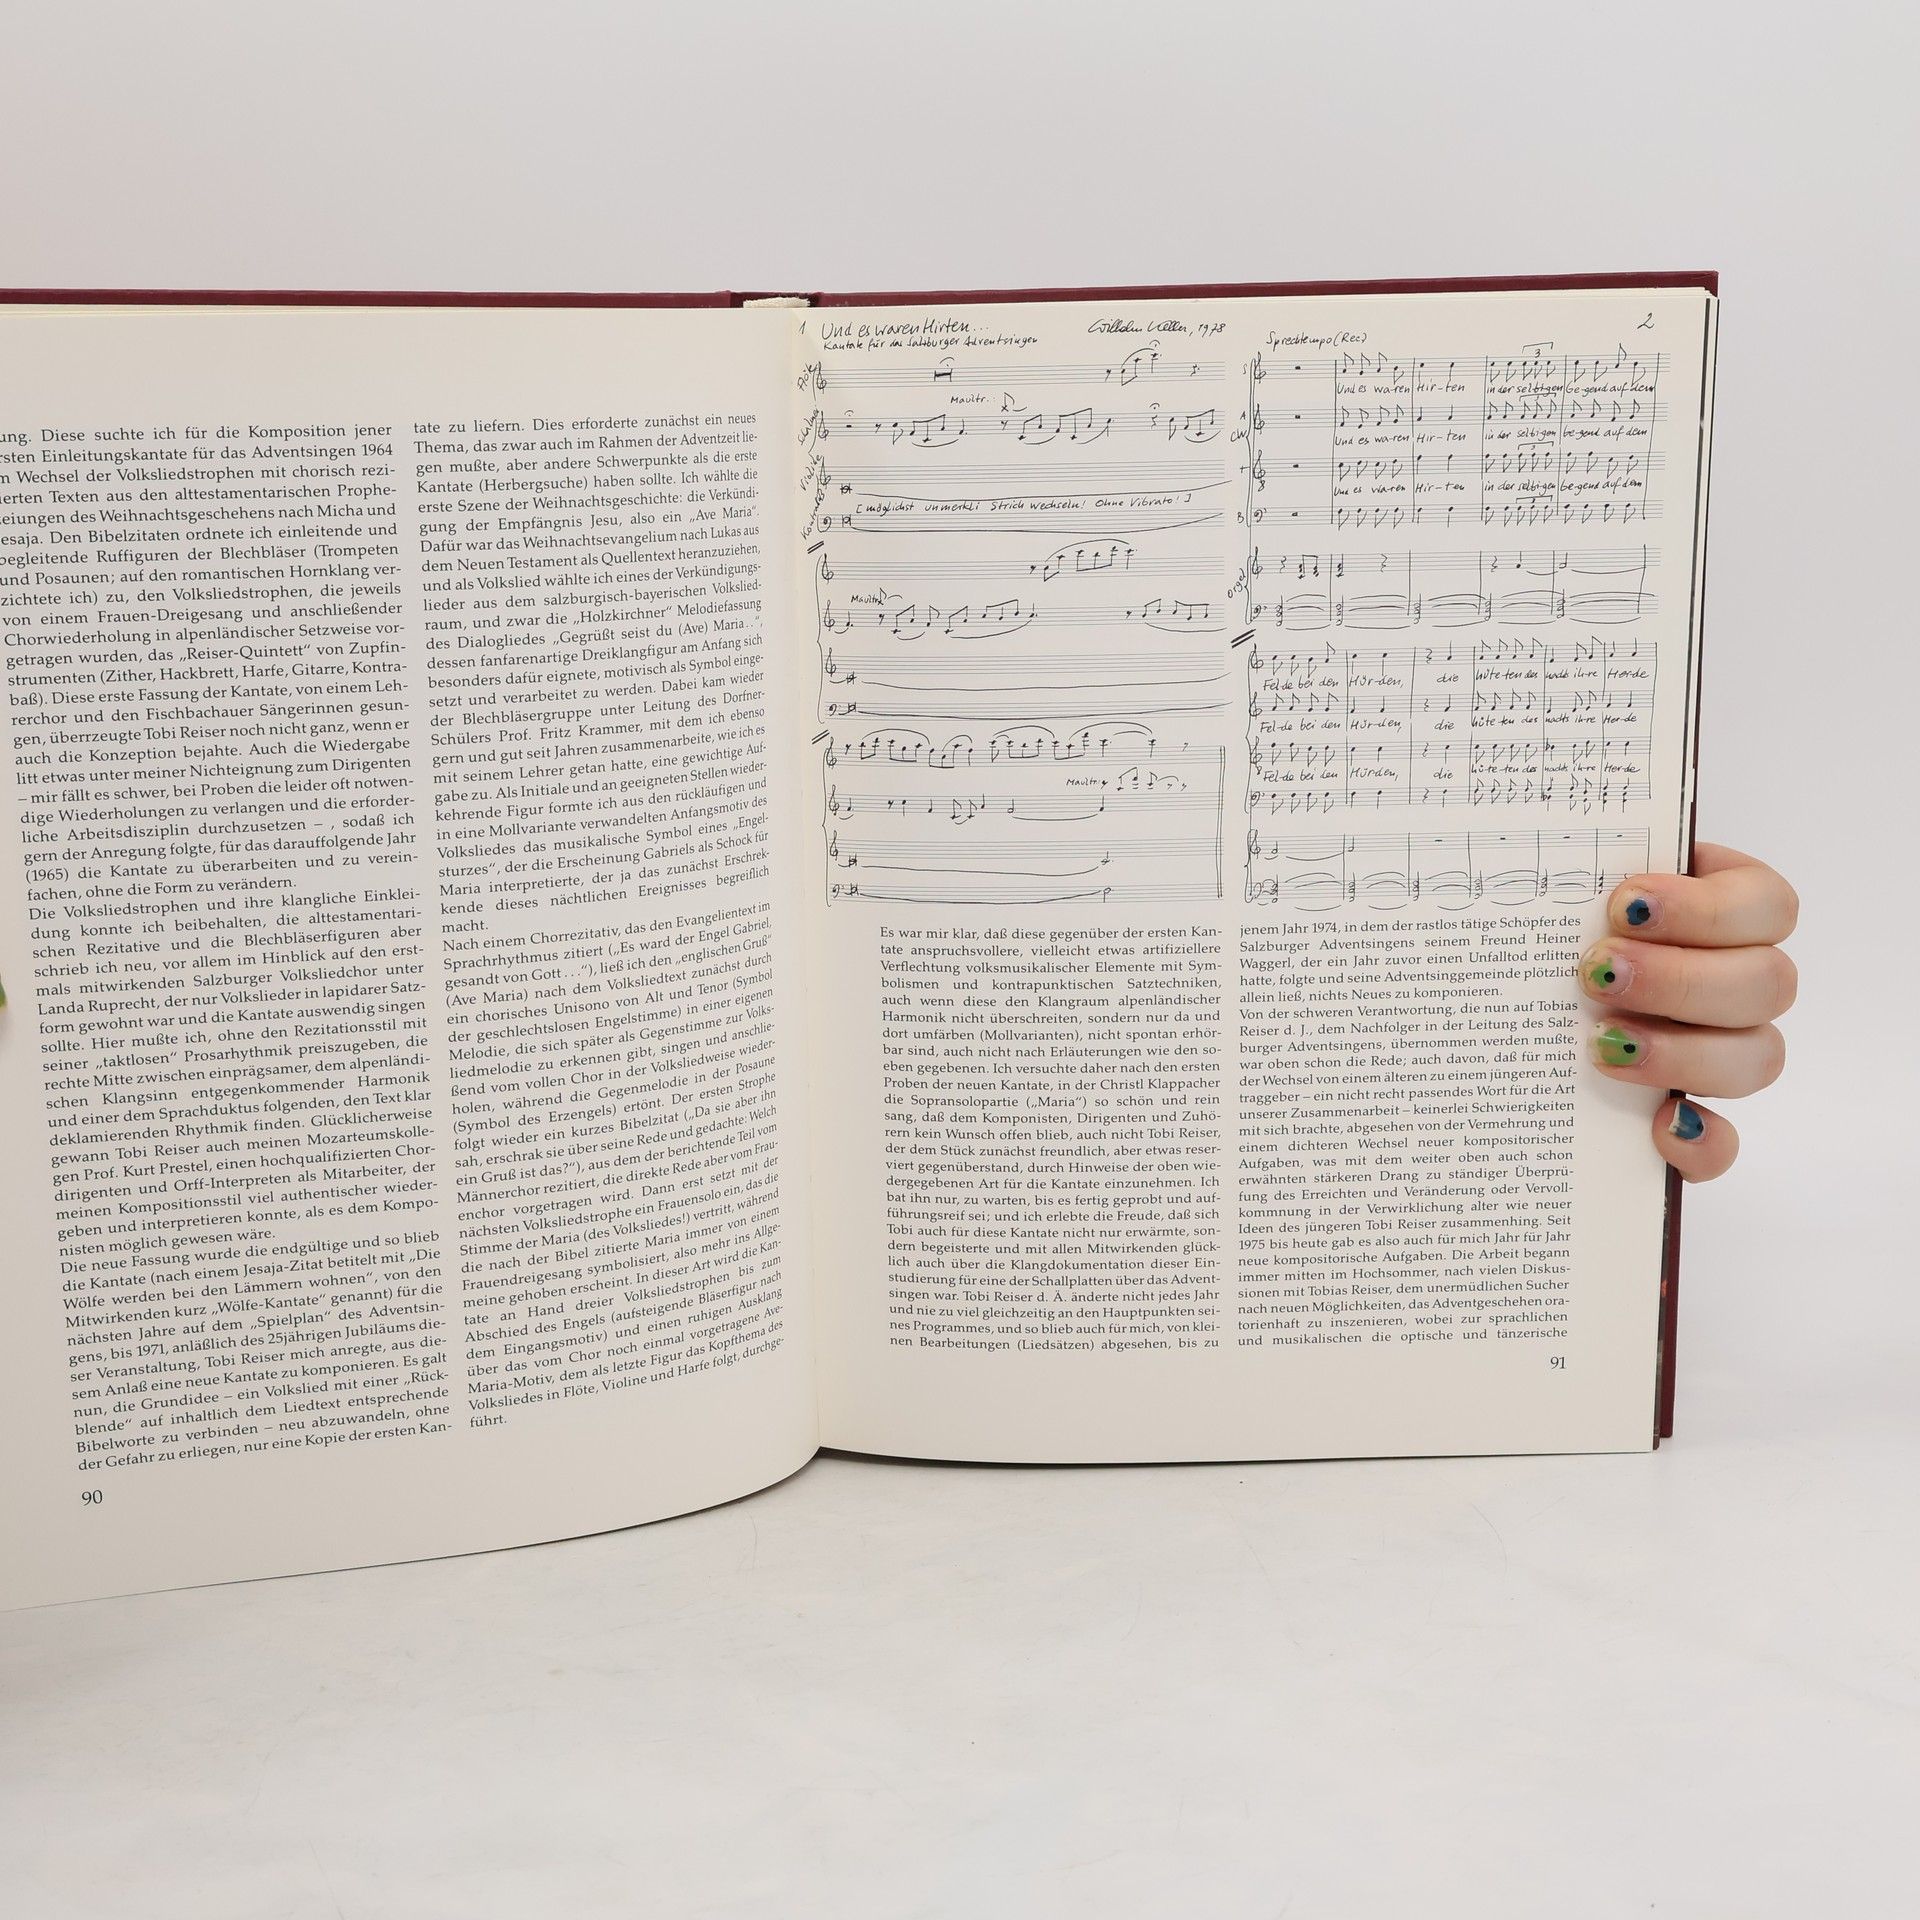 ung. Diese suchte ich für die Komposition jener
rsten Einleitungskantate für das Adventsingen 1964
m Wechsel der Volksliedstrophen mit chorisch rezi-
ierten Texten aus den alttestamentarischen Prophe-
zeiungen des Weihnachtsgeschehens nach Micha und
esaja. Den Bibelzitaten ordnete ich einleitende und
begleitende Ruffiguren der Blechbläser (Trompeten
und Posaunen; auf den romantischen Hornklang ver-
zichtete ich) zu, den Volksliedstrophen, die jeweils
von einem Frauen-Dreigesang und anschließender
Chorwiederholung in alpenländischer Setzweise vor-
getragen wurden, das „Reiser-Quintett“ von Zupfin-
strumenten (Zither, Hackbrett, Harfe, Gitarre, Kontra-
baß). Diese erste Fassung der Kantate, von einem Leh-
rerchor und den Fischbachauer Sängerinnen gesun-
gen, überrzeugte Tobi Reiser noch nicht ganz, wenn er
auch die Konzeption bejahte. Auch die Wiedergabe
litt etwas unter meiner Nichteignung zum Dirigenten
– mir fällt es schwer, bei Proben die leider oft notwen-
dige Wiederholungen zu verlangen und die erforder-
liche Arbeitsdisziplin durchzusetzen – , sodaß ich
gern der Anregung folgte, für das darauffolgende Jahr
(1965) die Kantate zu überarbeiten und zu verein-
fachen, ohne die Form zu verändern.
Die Volksliedstrophen und ihre klangliche Einklei-
dung konnte ich beibehalten, die alttestamentari-
schen Rezitative und die Blechbläserfiguren aber
schrieb ich neu, vor allem im Hinblick auf den erst-
mals mitwirkenden Salzburger Volksliedchor unter
Landa Ruprecht, der nur Volkslieder in lapidarer Satz-
form gewohnt war und die Kantate auswendig singen
sollte. Hier mußte ich, ohne den Rezitationsstil mit
seiner „taktlosen“ Prosarhythmik preiszugeben, die
rechte Mitte zwischen einprägsamer, dem alpenländi-
schen Klangsinn entgegenkommender Harmonik
und einer dem Sprachduktus folgenden, den Text klar
deklamierenden Rhythmik finden. Glücklicherweise
gewann Tobi Reiser auch meinen Mozarteumskolle-
gen Prof. Kurt Prestel, einen hochqualifizierten Chor-
dirigenten und Orff-Interpreten als Mitarbeiter, der
meinen Kompositionsstil viel authentischer wieder-
geben und interpretieren konnte, als es dem Kompo-
nisten möglich gewesen wäre.
Die neue Fassung wurde die endgültige und so blieb
die Kantate (nach einem Jesaja-Zitat betitelt mit „Die
Wölfe werden bei den Lämmern wohnen“, von den
Mitwirkenden kurz „Wölfe-Kantate“ genannt) für die
nächsten Jahre auf dem „Spielplan“ des Adventsin-
gens, bis 1971, anläßlich des 25jährigen Jubiläums die-
ser Veranstaltung, Tobi Reiser mich anregte, aus die-
sem Anlaß eine neue Kantate zu komponieren. Es galt
nun, die Grundidee – ein Volkslied mit einer „Rück-
blende“ auf inhaltlich dem Liedtext entsprechende
Bibelworte zu verbinden – neu abzuwandeln, ohne
der Gefahr zu erliegen, nur eine Kopie der ersten Kan-
90
tate zu liefern. Dies erforderte zunächst ein neues
Thema, das zwar auch im Rahmen der Adventzeit lie-
gen mußte, aber andere Schwerpunkte als die erste
Kantate (Herbergsuche) haben sollte. Ich wählte die
erste Szene der Weihnachtsgeschichte: die Verkündi-
gung der Empfängnis Jesu, also ein „Ave Maria“.
Dafür war das Weihnachtsevangelium nach Lukas aus
dem Neuen Testament als Quellentext heranzuziehen,
und als Volkslied wählte ich eines der Verkündigungs-
lieder aus dem salzburgisch-bayerischen Volkslied-
raum, und zwar die „Holzkirchner“ Melodiefassung
des Dialogliedes „Gegrüßt seist du (Ave) Maria..“,
dessen fanfarenartige Dreiklangfigur am Anfang sich
besonders dafür eignete, motivisch als Symbol einge-
setzt und verarbeitet zu werden. Dabei kam wieder
der Blechbläsergruppe unter Leitung des Dorfner-
Schülers Prof. Fritz Krammer, mit dem ich ebenso
gern und gut seit Jahren zusammenarbeite, wie ich es
mit seinem Lehrer getan hatte, eine gewichtige Auf-
gabe zu. Als Initiale und an geeigneten Stellen wieder-
kehrende Figur formte ich aus den rückläufigen und
in eine Mollvariante verwandelten Anfangsmotiv des
Volksliedes das musikalische Symbol eines „Engel-
sturzes“, der die Erscheinung Gabriels als Schock für
Maria interpretierte, der ja das zunächst Erschrek-
kende dieses nächtlichen Ereignisses begreiflich
macht.
Nach einem Chorrezitativ, das den Evangelientext im
Sprachrhythmus zitiert („Es ward der Engel Gabriel,
gesandt von Gott . . .“), ließ ich den „englischen Gruß“
(Ave Maria) nach dem Volksliedtext zunächst durch
ein chorisches Unisono von Alt und Tenor (Symbol
der geschlechtslosen Engelstimme) in einer eigenen
Melodie, die sich später als Gegenstimme zur Volks-
liedmelodie zu erkennen gibt, singen und anschlie-
ßend vom vollen Chor in der Volksliedweise wieder-
holen, während die Gegenmelodie in der Posaune
(Symbol des Erzengels) ertönt. Der ersten Strophe
folgt wieder ein kurzes Bibelzitat („Da sie aber ihn
sah, erschrak sie über seine Rede und gedachte: Welch
ein Gruß ist das?“), aus dem der berichtende Teil vom
Männerchor rezitiert, die direkte Rede aber vom Frau-
enchor vorgetragen wird. Dann erst setzt mit der
nächsten Volksliedstrophe ein Frauensolo ein, das die
Stimme der Maria (des Volksliedes!) vertritt, während
die nach der Bibel zitierte Maria immer von einem
Frauendreigesang symbolisiert, also mehr ins Allge-
meine gehoben erscheint. In dieser Art wird die Kan-
tate an Hand dreier Volksliedstrophen bis zum
Abschied des Engels (aufsteigende Bläserfigur nach
dem Eingangsmotiv) und einen ruhigen Ausklang
über das vom Chor noch einmal vorgetragene Ave-
Maria-Motiv, dem als letzte Figur das Kopfthema des
Volksliedes in Flöte, Violine und Harfe folgt, durchge-
führt.
1 Und es waren Hirten...
Wilhelm Keller, 1978
Kantate für das Salzburger Adventsingen
Flöte
Maultr.:
Violine
Kontrabaß
[möglichst unmerkl. Strich wechseln! Ohne Vibrato!]
Maultr.
Maultr.
2
Sprechtempo (Rec)
S
Und es wa-ren Hir-ten in der selbigen Ge-gend auf dem
A
Und es wa-ren Hir-ten in der selbigen Ge-gend auf dem
T
Und es wa-ren Hir-ten in der selbigen Ge-gend auf dem
B
Orgel
Fel-de bei den Hür-den, die hüte-ten des nachts ih-re Herde
Fel-de bei den Hür-den, die hüte-ten des nachts ih-re Her-de
Fel-de bei den Hürden, die hü-te-ten des nachts ih-re Herde
Es war mir klar, daß diese gegenüber der ersten Kan-
tate anspruchsvollere, vielleicht etwas artifiziellere
Verflechtung volksmusikalischer Elemente mit Sym-
bolismen und kontrapunktischen Satztechniken,
auch wenn diese den Klangraum alpenländischer
Harmonik nicht überschreiten, sondern nur da und
dort umfärben (Mollvarianten), nicht spontan erhör-
bar sind, auch nicht nach Erläuterungen wie den so-
eben gegebenen. Ich versuchte daher nach den ersten
Proben der neuen Kantate, in der Christl Klappacher
die Sopransolopartie („Maria“) so schön und rein
sang, daß dem Komponisten, Dirigenten und Zuhö-
rern kein Wunsch offen blieb, auch nicht Tobi Reiser,
der dem Stück zunächst freundlich, aber etwas reser-
viert gegenüberstand, durch Hinweise der oben wie-
dergegebenen Art für die Kantate einzunehmen. Ich
bat ihn nur, zu warten, bis es fertig geprobt und auf-
führungsreif sei; und ich erlebte die Freude, daß sich
Tobi auch für diese Kantate nicht nur erwärmte, son-
dern begeisterte und mit allen Mitwirkenden glück-
lich auch über die Klangdokumentation dieser Ein-
studierung für eine der Schallplatten über das Advent-
singen war. Tobi Reiser d. Ä. änderte nicht jedes Jahr
und nie zu viel gleichzeitig an den Hauptpunkten sei-
nes Programmes, und so blieb auch für mich, von klei-
nen Bearbeitungen (Liedsätzen) abgesehen, bis zu
jenem Jahr 1974, in dem der rastlos tätige Schöpfer des
Salzburger Adventsingens seinem Freund Heiner
Waggerl, der ein Jahr zuvor einen Unfalltod erlitten
hatte, folgte und seine Adventsinggemeinde plötzlich
allein ließ, nichts Neues zu komponieren.
Von der schweren Verantwortung, die nun auf Tobias
Reiser d. J., dem Nachfolger in der Leitung des Salz-
burger Adventsingens, übernommen werden mußte,
war oben schon die Rede; auch davon, daß für mich
der Wechsel von einem älteren zu einem jüngeren Auf-
traggeber – ein nicht recht passendes Wort für die Art
unserer Zusammenarbeit – keinerlei Schwierigkeiten
mit sich brachte, abgesehen von der Vermehrung und
einem dichteren Wechsel neuer kompositorischer
Aufgaben, was mit dem weiter oben auch schon
erwähnten stärkeren Drang zu ständiger Überprü-
fung des Erreichten und Veränderung oder Vervoll-
kommnung in der Verwirklichung alter wie neuer
Ideen des jüngeren Tobi Reiser zusammenhing. Seit
1975 bis heute gab es also auch für mich Jahr für Jahr
neue kompositorische Aufgaben. Die Arbeit begann
immer mitten im Hochsommer, nach vielen Diskus-
sionen mit Tobias Reiser, dem unermüdlichen Sucher
nach neuen Möglichkeiten, das Adventgeschehen ora-
torienhaft zu inszenieren, wobei zur sprachlichen
und musikalischen die optische und tänzerische
91